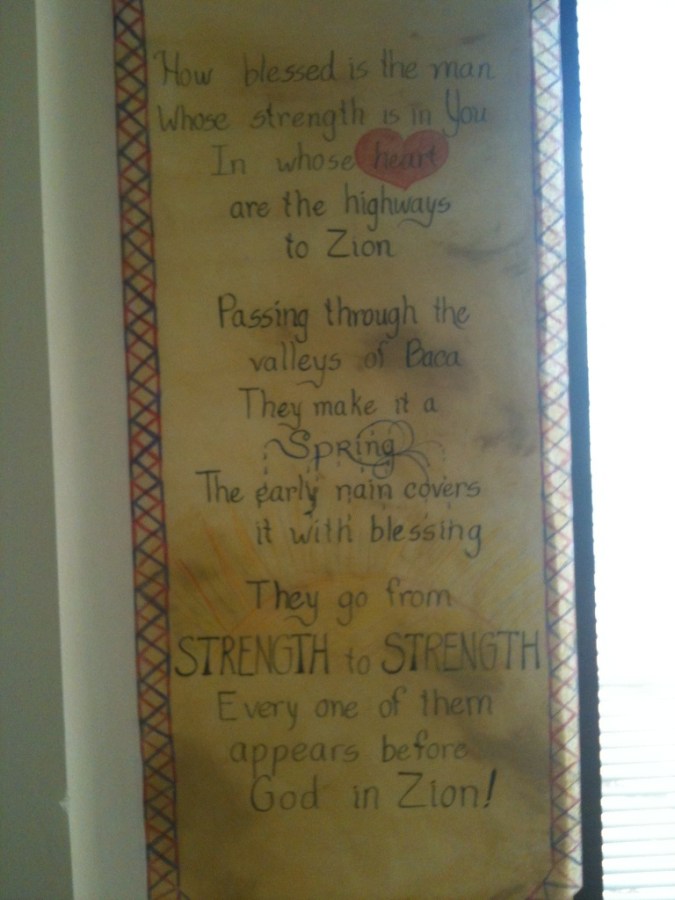 How blessed is the man
Whose strength is in You
In whose heart
are the highways
to Zion
Passing through the
valleys of Baca
They make it a
Spring
The early rain covers
it with blessing
They go from
STRENGTH to STRENGTH
Every one of them
appears before
God in Zion!